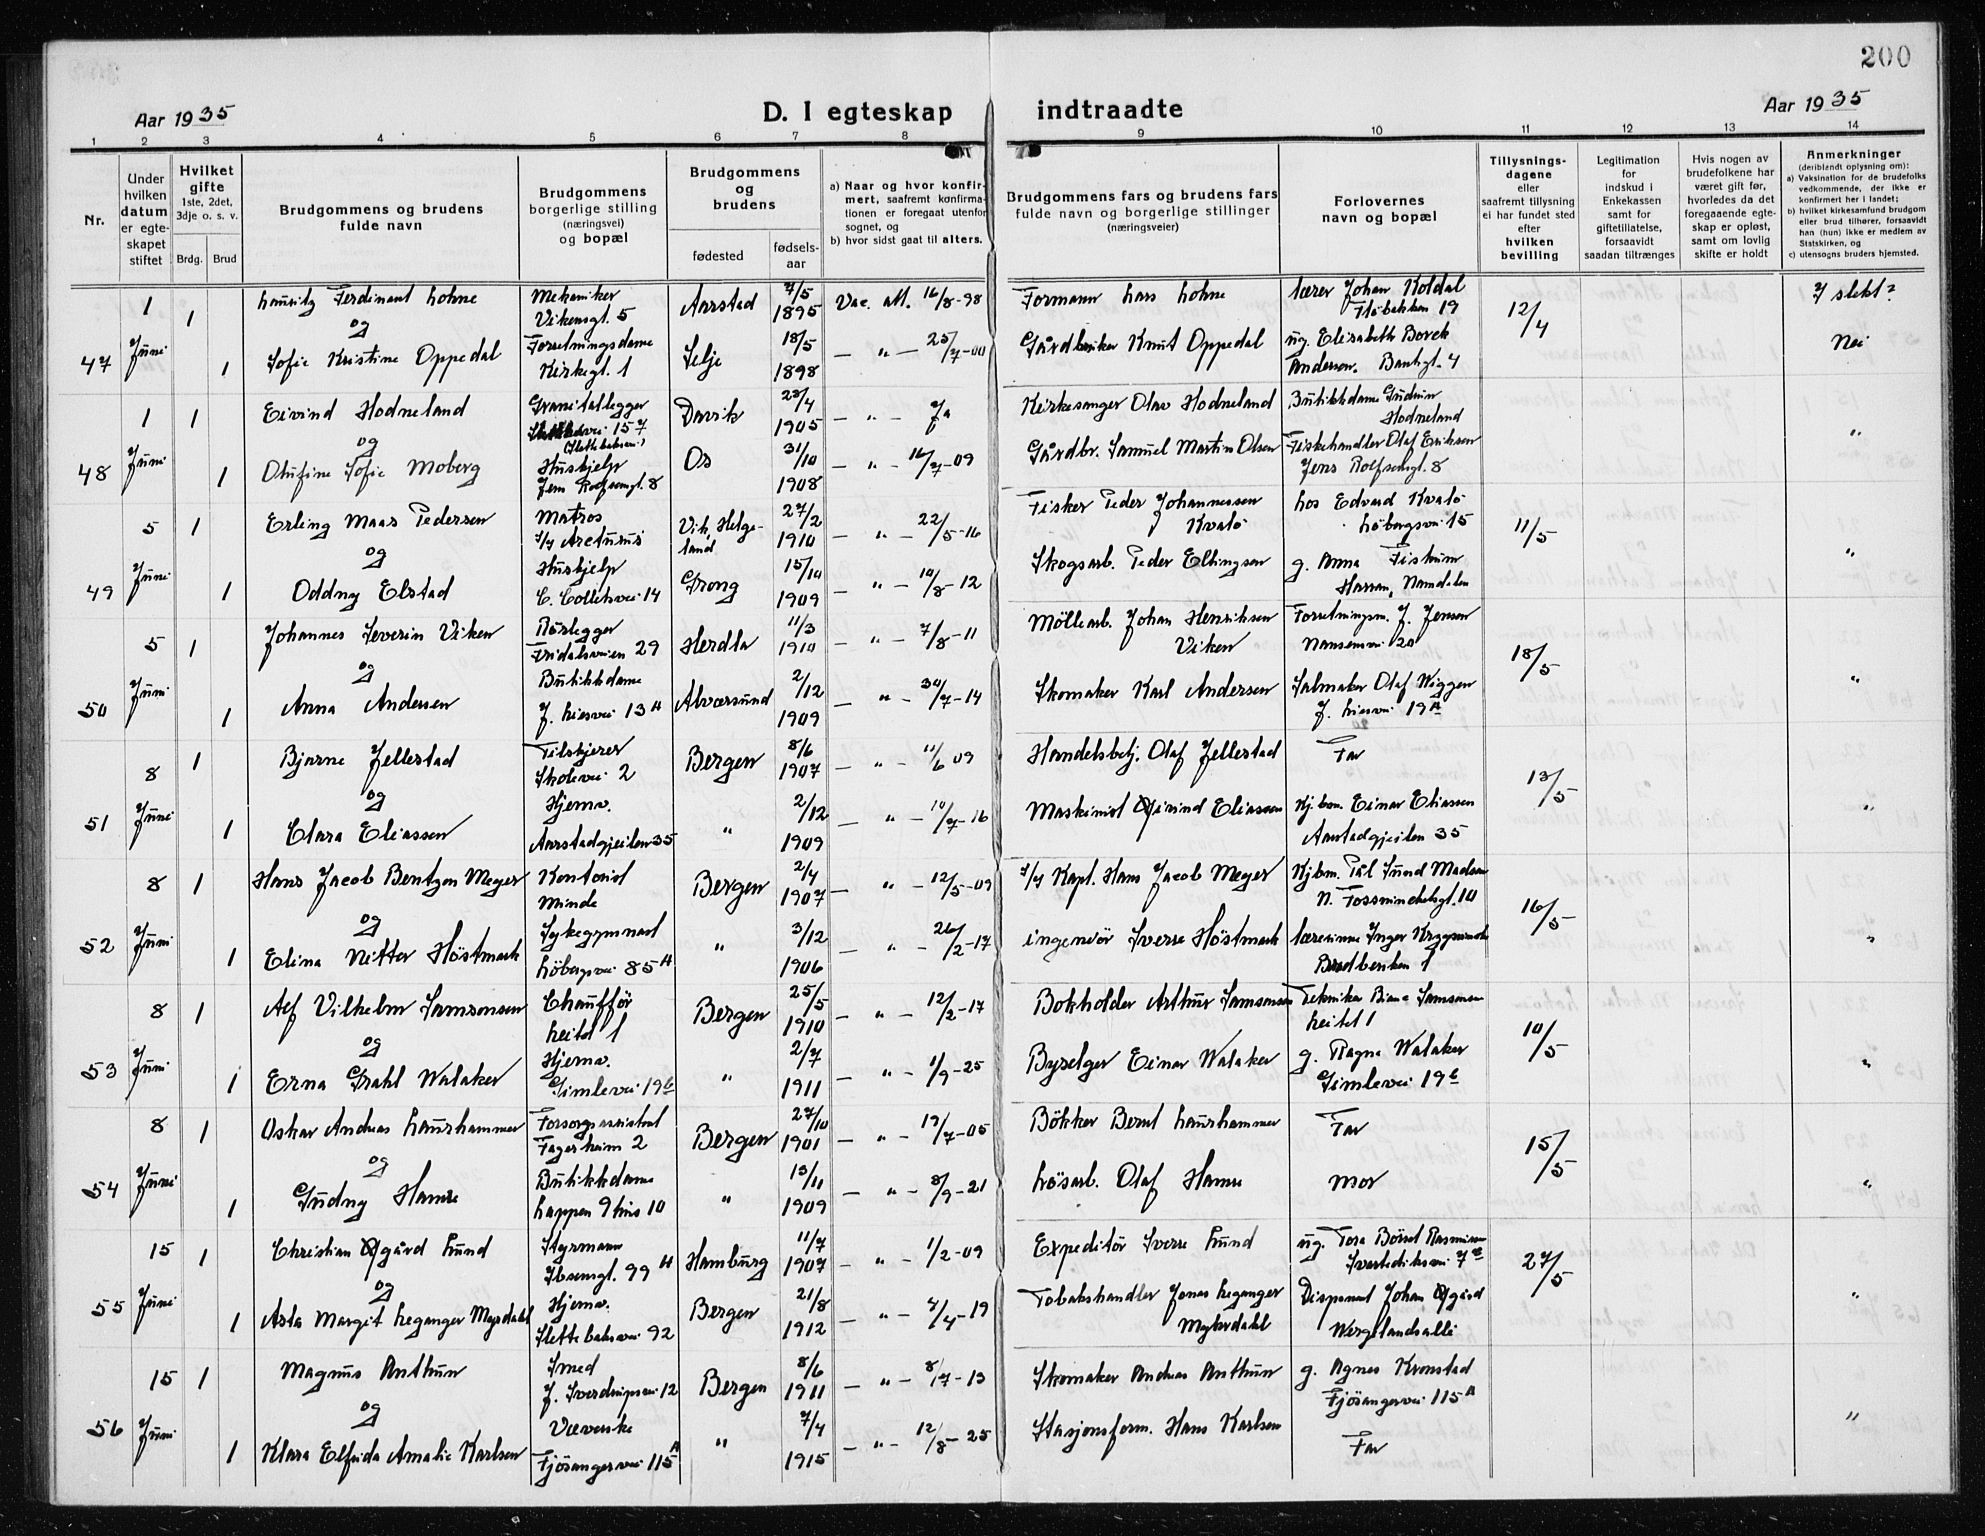 200
Aar 1935
D. I egteskap indtraadte
Aar 1935
1 2 3 4 5 6 7 8 9 10 11 12 13 14
Nr.
Under hvilken datum er egteskapet stiftet
Hvilket gifte 1ste, 2det, 3dje o. s. v.
Brdg. Brud
Brudgommens og brudens fulde navn
Brudgommens borgerlige stilling (næringsvei) og bopæl
Brudgommens og brudens
fødested
fødsels-aar
a) Naar og hvor konfirmert, saafremt konfirmationen er foregaat utenfor sognet, og
b) hvor sidst gaat til alters.
Brudgommens fars og brudens fars fulde navn og borgerlige stillinger (næringsveier)
Forlovernes navn og bopæl
Tillysningsdagene eller saafremt tillysning ei har fundet sted efter hvilken bevilling
Legitimation for indskud i Enkekassen samt for giftetillatelse, forsaavidt saadan tiltrænges
Hvis nogen av brudefolkene har været gift før, hvorledes da det foregaaende egteskap er opløst, samt om lovlig skifte er holdt
Anmerkninger (deriblendt oplysning om):
a) Vaksination for de brudefolks vedkommende, der ikke er konfirmert her i landet;
b) hvilket kirkesamfund brudgom eller brud tilhører, forsaavidt han (hun) ikke er medlem av Statskirken, og
c) utensogns bruders hjemsted.
47 1 Juni 1 Lauritz Ferdinant Lohne Mekaniker Vikensgt. 5 Aarstad 7/5 1895 Vac. att. 16/8-98 Formann Lars Lohne lærer Johan Koldal Fløbakken 19 12/4 I slekt?
og
1 Sofie Kristine Oppedal Forretningsdame Kirkegt. 1 Selje 18/5 1898 — " — 25/7-00 Gårdbruker Knut Oppedal ug. Elisabeth Borck Andersen. Bankgt. 4 Nei
48 1 Juni 1 Eivind Hodneland Granitallegger 157 (Slettebakken) Davik 22/4 1905 — " — Ja Kirkesanger Olav Hodneland Butikkdame Gudrun Hodneland
og
1 Olufine Sofie Moberg Huskjelp Jens Rolfsensgt. 8 Os 31/10 1908 — " — 16/7-09 Gårdbr. Samuel Martin Olsen Fiskehandler Olaf Eriksen Jens Rolfsensgt. 8 "
49 5 Juni 1 Erling Maas Pedersen Matros S/S Arcturus Vik, Helgeland 27/2 1910 — " — 22/5-16 Fisker Peder Johannessen Kvalø hos Edvard Kvalø Løbergsvei 15 11/5
og
1 Oddny Elstad Huskjelp C. Colletsvei 14 Grong 15/10 1909 — " — 10/8-12 Skogsarb. Peder Ellingsen g. Anna Fiskum Harran, Namdalen "
50 5 Juni 1 Johannes Severin Viken Rørlegger Fridalsveien 29 Herdla 11/3 1910 — " — 7/8-11 Møllearb. Johan Henriksen Viken Forretningsm. J. Jensen Nansensvei 20 18/5
og
1 Anna Andersen Butikkdame J. Liesvei 13A Alværsund 2/12 1909 — " — 30/7-14 Skomaker Karl Andersen Salmaker Olaf Wiggen J. Liesvei 19A "
51 8 Juni 1 Bjarne Jellestad Tilskjærer Skolevei 2 Bergen 8/6 1907 — " — 11/6 09 Handelsbetj. Olaf Jellestad Far 13/5
og
1 Clara Eliassen Hjemv. Aarstadgjeilen 35 " 2/12 1909 — " — 10/7-16 Maskinist Øivind Eliassen Kjbm. Einar Eliassen Aarstadgjeilen 35 "
52 8 Juni 1 Hans Jacob Bentzon Meyer Kontorist Minde Bergen 2/4 1907 — " — 12/5-09 S/S Kapt. Hans Jacob Meyer Kjbm. Pål Sund Madsen N. Fosswinckelsgt. 10 16/5
og
1 Elina Nitter Høstmark Sykegymnast Løbergsvei 85A " 3/12 1906 — " — 26/2-17 ingeniør Sverre Høstmark lærerinne Inger Bradbenken 1 "
53 8 Juni 1 Alf Vilhelm Samsonsen Chaufför Leitet 1 Bergen 25/5 1910 — " — 12/2-17 Bokholder Arthur Samsonsen Tekniker Samsonsen Leitet 1 10/5
og
1 Erna Grahl Walaker Hjemv. Gimlevei 19b " 2/7 1911 — " — 1/9-25 Byselger Einar Walaker g. Ragna Walaker Gimlevei 19b "
54 8 Juni 1 Oskar Andreas Laurhammer Forsorgsassistent Fagerheim 2 Bergen 27/10 1901 — " — 19/7-05 Bøkker Bernt Laurhammer Far 15/5
og
1 Gudny Hamre Butikkdame Lappen 9 hus 10 " 13/11 1909 — " — 8/9-21 Løsarb. Olaf Hamre Mor "
55 15 Juni 1 Christian Øgård Lund Styrmann Ibsensgt. 99A Hamburg 11/7 1907 — " — 1/2-09 Expeditør Sverre Lund ug. Tora Børset Rasmussen Svartediksvei 7 27/5
og
1 Asta Margit Leganger Myrdahl Hjemv. Slettebaksvei 92 Bergen 21/8 1912 — " — 4/4-19 Tobakshandler Jonas Leganger Myhrdahl Disponent Johan Øgård Wergelandsallé "
56 15 Juni 1 Magnus Anthun Smed J. Sverdrupsvei 12 Bergen 8/6 1911 — " — 8/7-13 Skomaker Andreas Anthun g. Agnes Kronstad Fjøsangervei 115A
og
1 Klara Elfrida Amalie Karlsen Væverske Fjøsangervei 115A " 7/4 1915 — " — 12/8-25 Stasjonsform. Hans Karlsen Far "